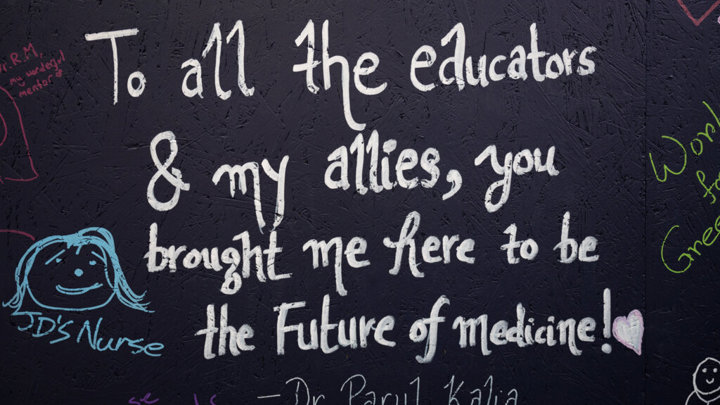 To all the educators
& my allies, you
brought me here to be
the Future of medicine!
— Dr Parul Kalia
Dr. R.M,
my wonderful
mentor
JD's Nurse
Work
for
Gree